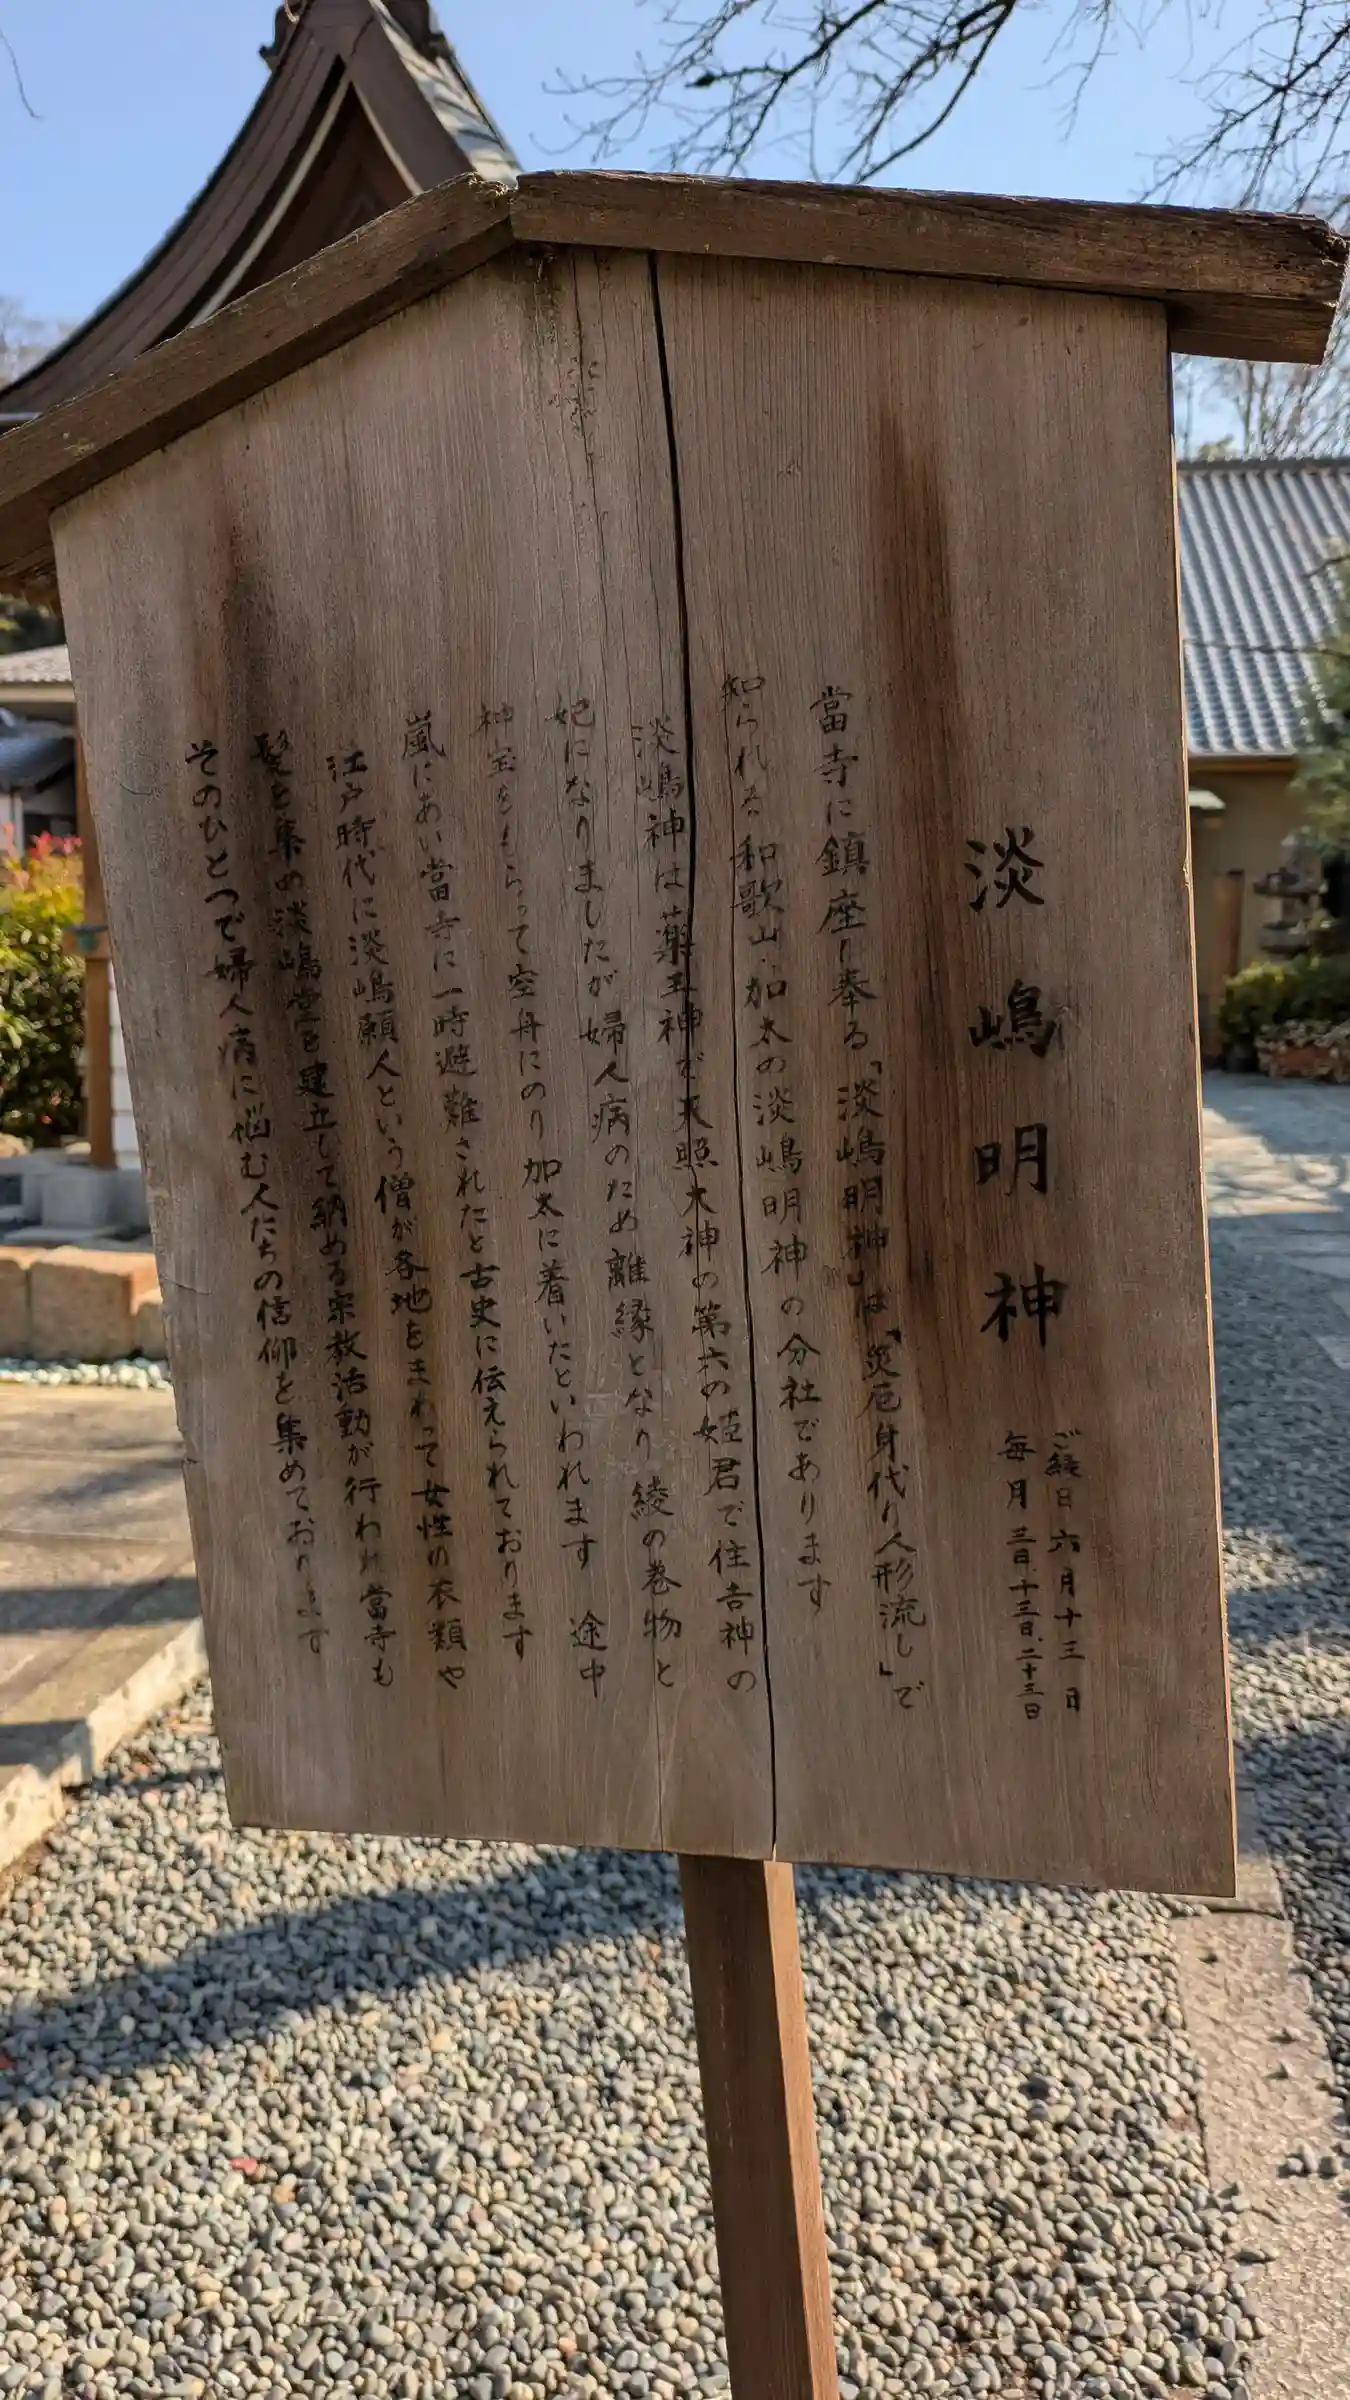 淡嶋明神
ご縁日 六月十三日
毎月 三日、十三日、二十三日
當寺に鎮座し奉る「淡嶋明神」は「災厄身代り人形流し」で
知られる和歌山・加太の淡嶋明神の分社であります
淡嶋神は薬王神で天照大神の第六の姫君で住吉神の
妃になりましたが婦人病のため離縁となり綾の巻物と
神宝をもらって空舟にのり加太に着いたといわれます 途中
嵐にあい當寺に一時避難されたと古史に伝えられております
江戸時代に淡嶋願人という僧が各地をまわって女性の衣類や
髪を集め淡嶋堂を建立して納める宗教活動が行われ當寺も
そのひとつで婦人病に悩む人たちの信仰を集めております